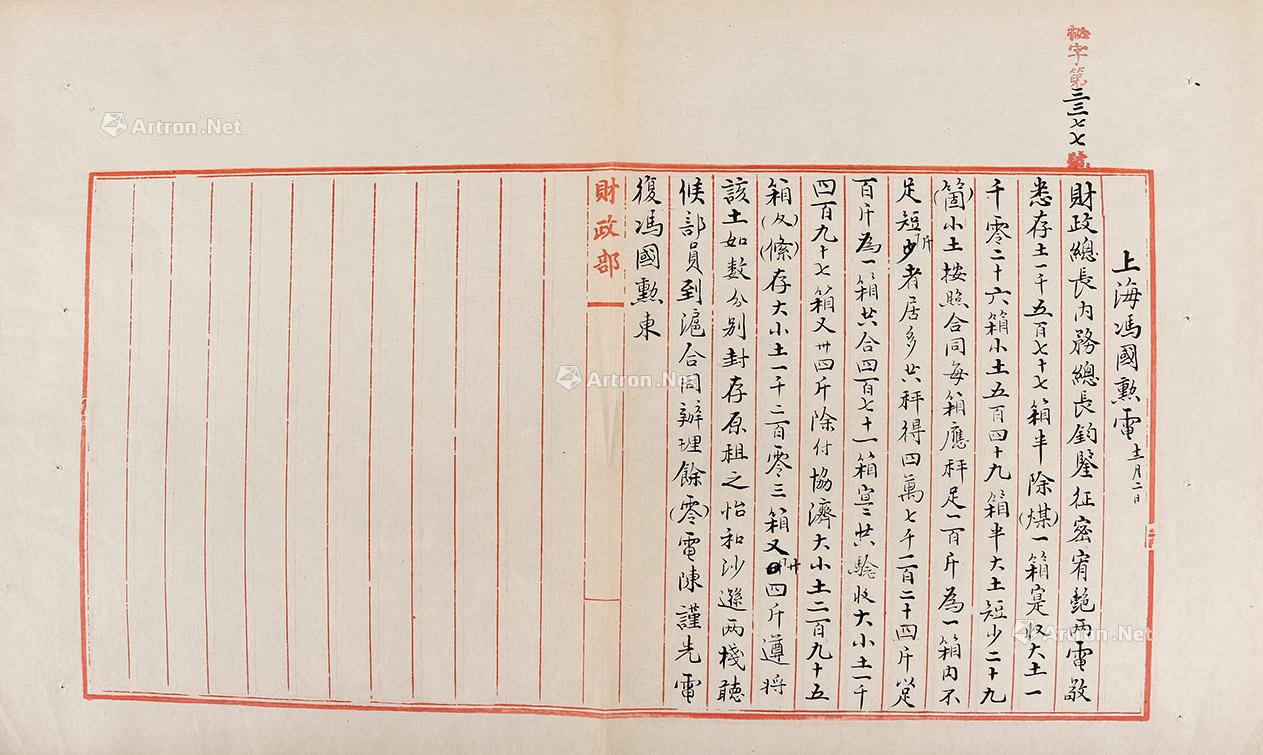 秘字第三三七七號
上海馮國勳電 十二月二日
財政總長內務總長鈞鑒征密宥艷兩電敬
悉存土一千五百七十七箱半除煤(一)箱寔收大土一
千零二十六箱小土五百四十九箱半大土短少二十九
(箇)小土按照合同每箱應秤足一百斤為一箱內不
足短少斤者居多共秤得四萬七千一百二十四斤以足
百斤為一箱共合四百七十一箱寔共驗收大小土一千
四百九十七箱又廿四斤除付協濟大小土二百九十五
箱(及)(絛)存大小土一千二百零三箱又廿四斤遵將
該土如數分別封存原租之怡和沙遜兩棧聽
候部員到滬合同辦理餘(零)電陳謹先電
復馮國勳東
財政部
Artron.Net
Artron.Net
Artron.Net